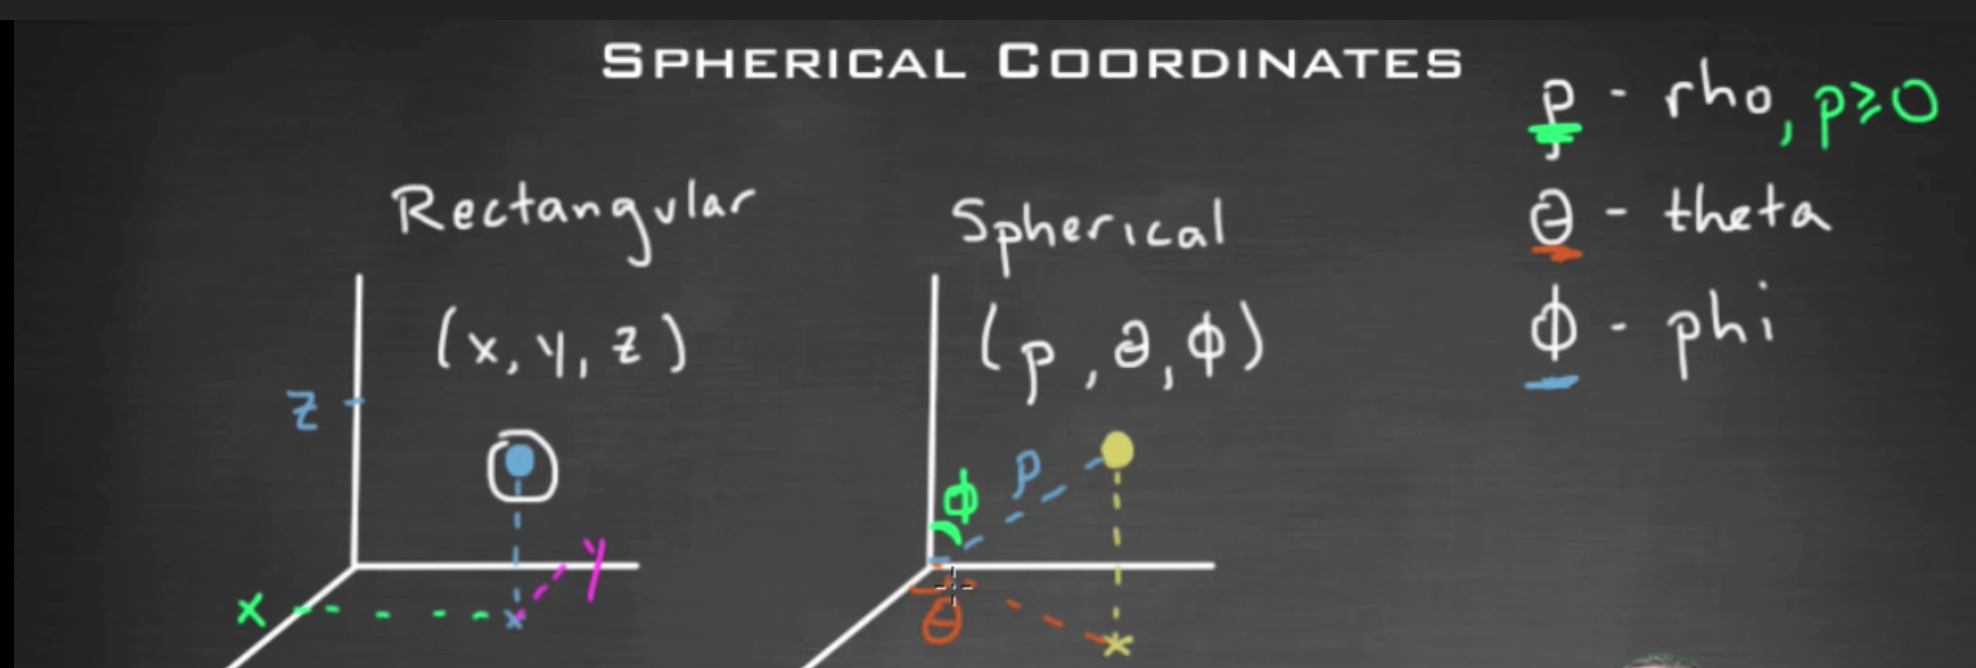 SPHERICAL COORDINATES
ρ - rho, ρ ≥ 0
θ - theta
ϕ - phi
Rectangular
(x, y, z)
z
x
y
Spherical
(ρ, θ, ϕ)
ϕ
ρ
θ